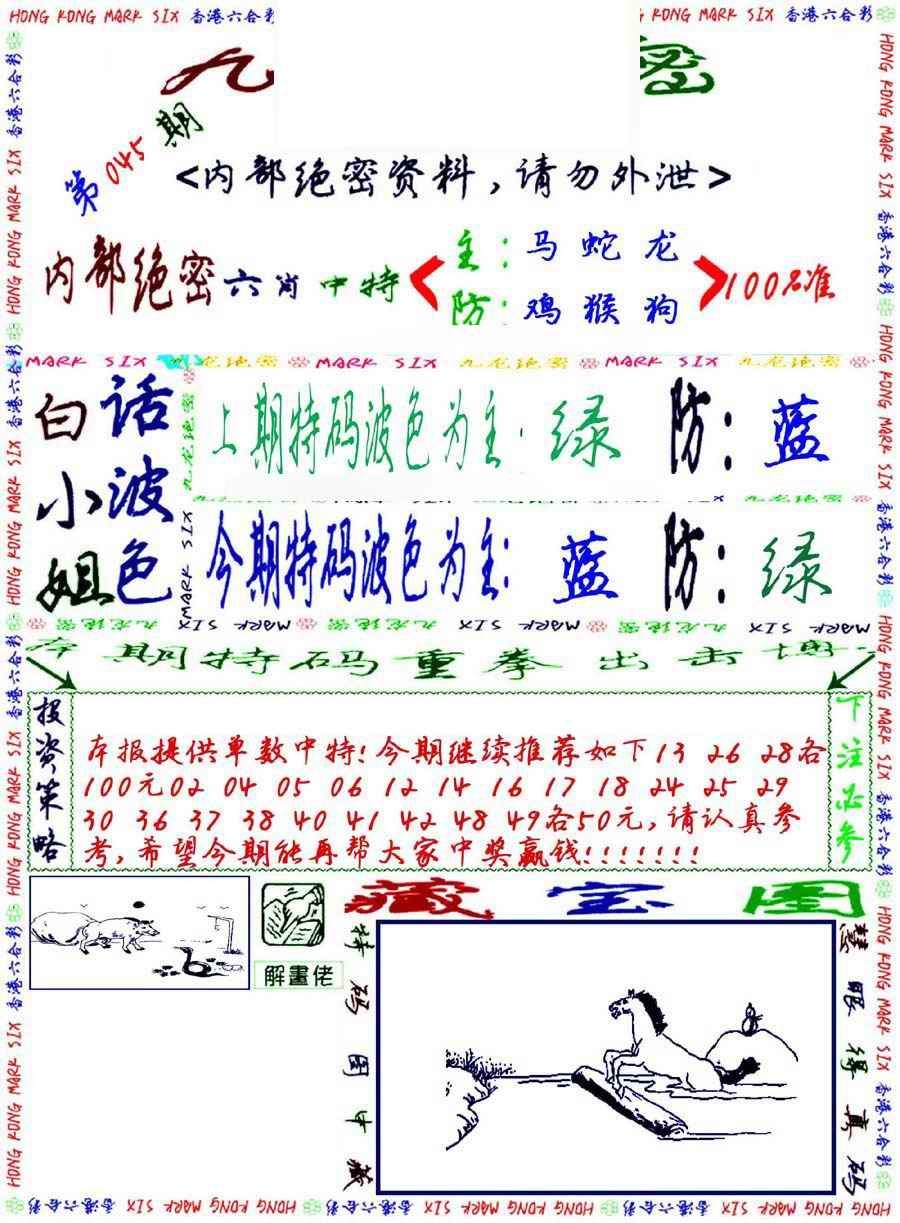 HONG KONG MARK SIX 香港六合彩
KONG MARK SIX 香港六合彩
九
密
第045期
<内部绝密资料,请勿外泄>
内部绝密六肖中特
主:马 蛇 龙
防:鸡 猴 狗
100%准
MARK SIX 九龙绝密 MARK SIX 九龙绝密 MARK SIX 九龙绝密
白话
小波
姐色
上期特码波色为主:绿 防:蓝
今期特码波色为主:蓝 防:绿
本期特码重拳出击
投资策略
本报提供单数中特!今期继续推荐如下13 26 28各
100元02 04 05 06 12 14 16 17 18 24 25 29
30 36 37 38 40 41 42 48 49各50元,请认真参
考,希望今期能再帮大家中奖赢钱!!!!!!!
下注必参
解畫佬
藏宝图
特码图中藏
慧眼得真码
HONG KONG MARK SIX 香港六合彩